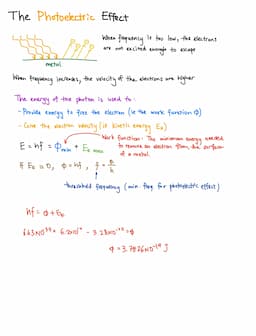 The Photoelectric Effect
When frequency is too low, the electrons
are not excited enough to escape
metal
When frequency increases, the velocity of the electrons are higher
The energy of the photon is used to:
- Provide energy to free the electron (ie the work function Φ)
- Give the electron velocity (ie kinetic energy Ek)
Work function: The minimum energy needed
to remove an electron from the surface
of a metal.
E = hf = Φmin + Ek max
If Ek = 0, Φ = hf, f = Φ/h
threshold frequency (min freq for photoelectric effect)
hf = Φ + Ek